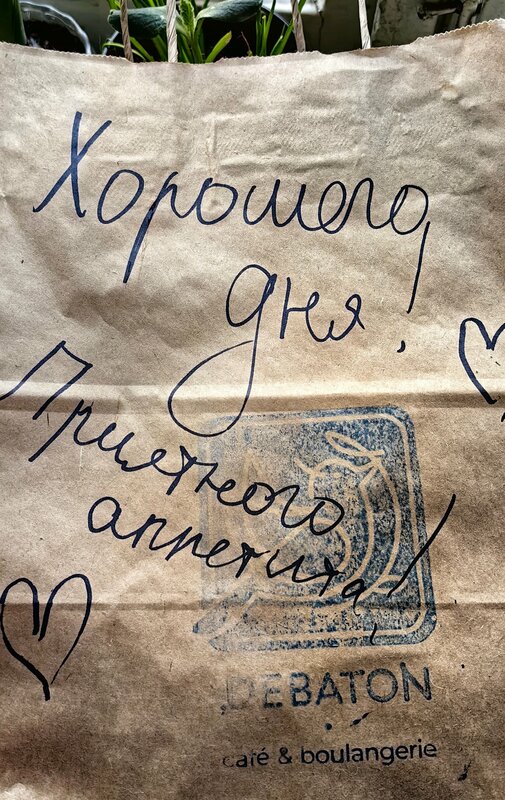 Хорошего
дня!
Приятного
аппетита!
DEBATON
café & boulangerie